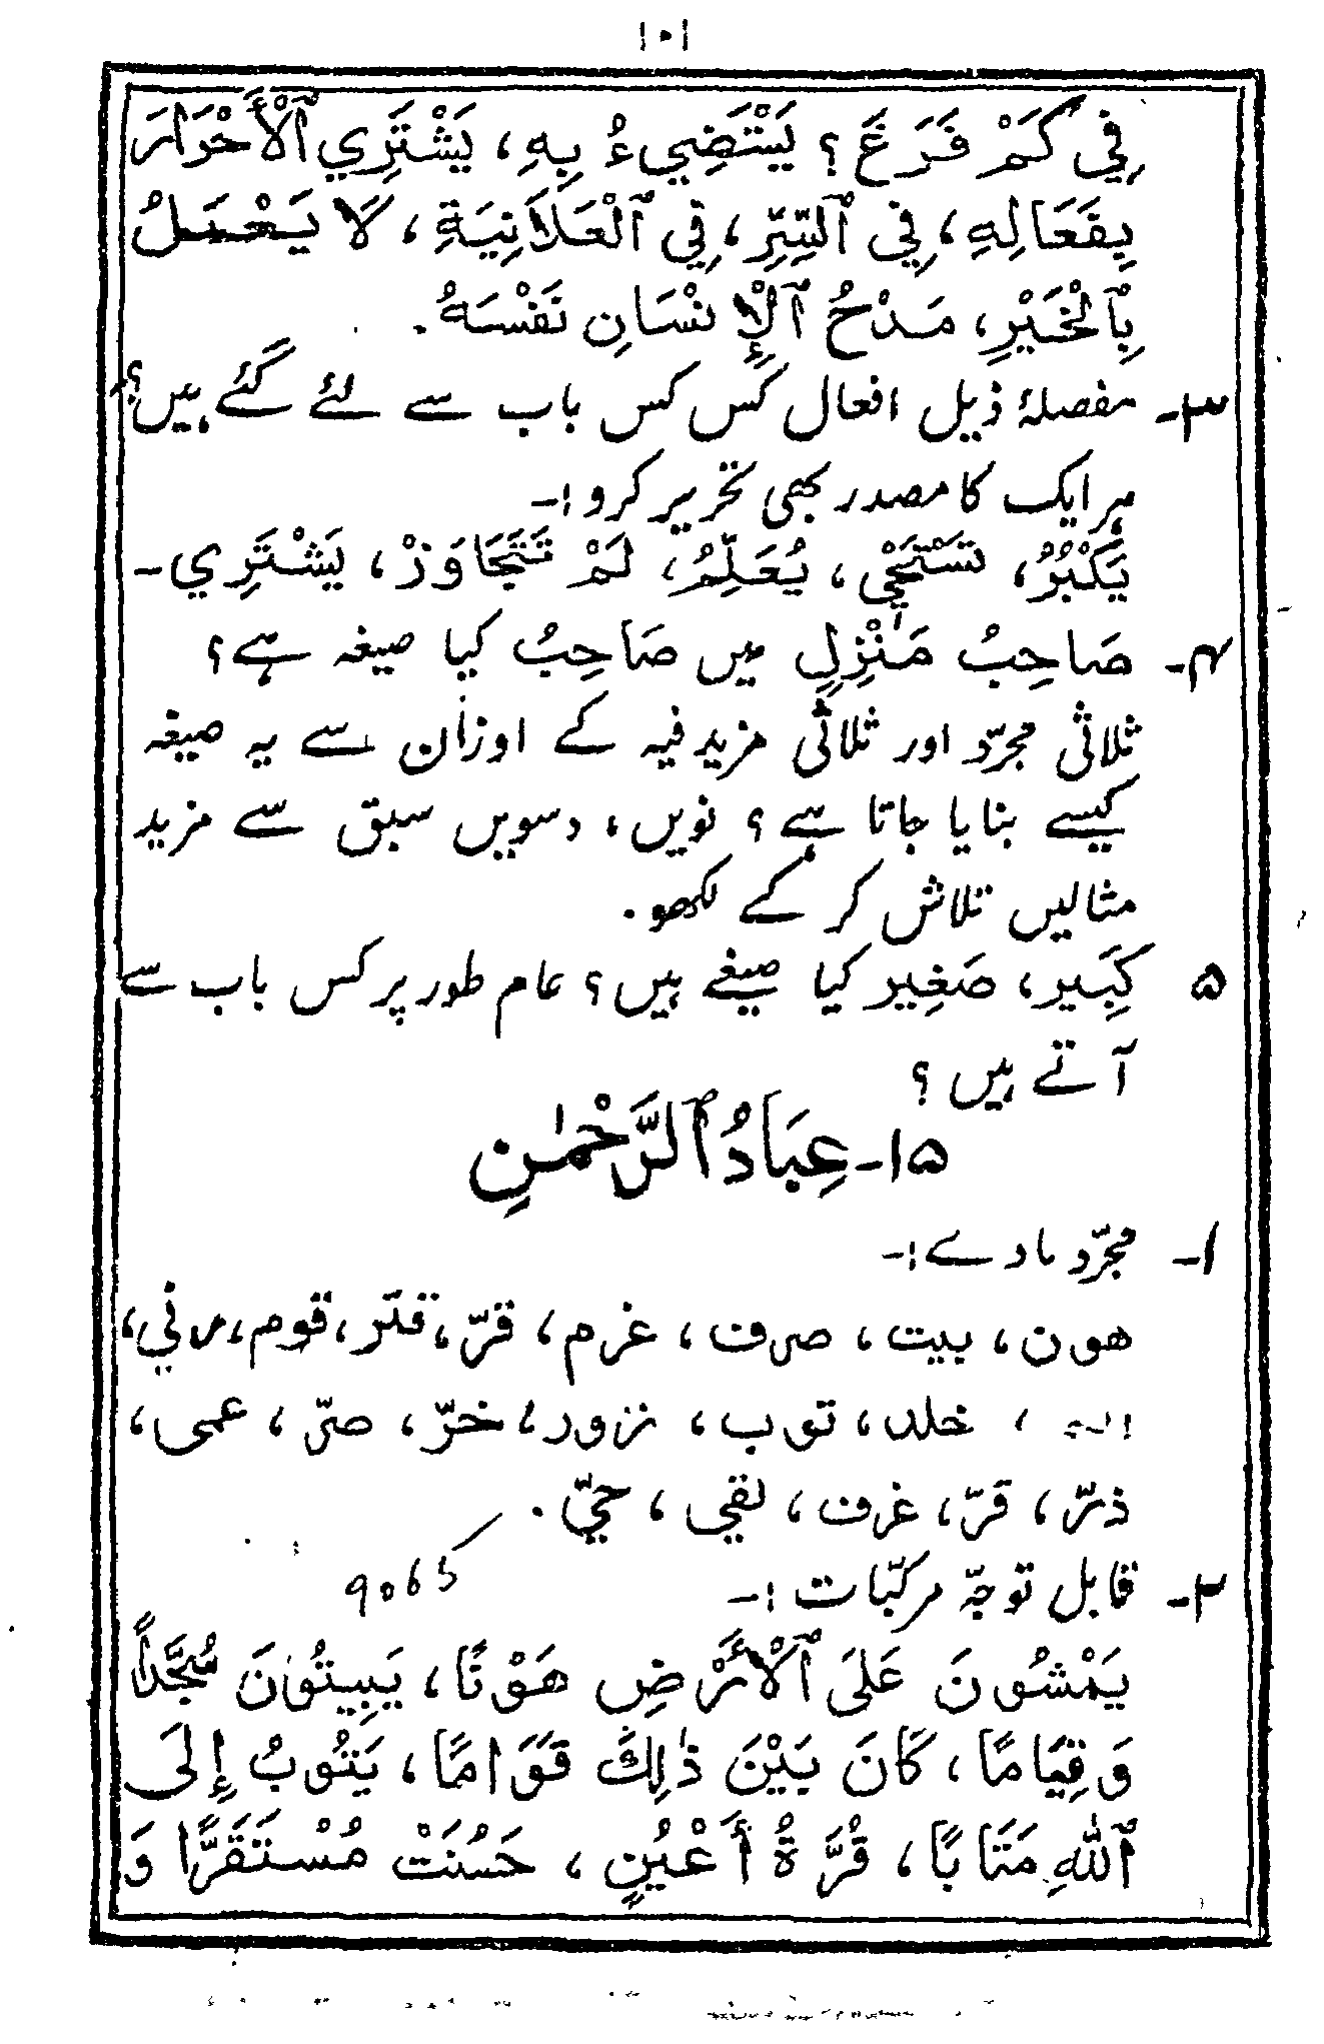 ۱۰۱
فِي كَمْ فَرَغَ؟ يَسْتَضِيءُ بِهِ، يَشْتَرِي ٱلْأَحْرَارَ
بِفَعَالِهِ، فِي ٱلسِّرِّ، فِي ٱلْعَلَانِيَةِ، لَا يَحْمَلُ
بِٱلْخَيْرِ، مَدْحُ ٱلْإِنْسَانِ نَفْسَهُ.
۳- مفصلۂ ذیل افعال کس کس باب سے لئے گئے ہیں؟
ہر ایک کا مصدر بھی تحریر کرو:-
يَكْبُرُ، تَسْتَحْيِ، يُعَلِّمُ، لَمْ تَتَجَاوَزْ، يَشْتَرِي-
۴- صَاحِبُ مَنْزِلٍ میں صَاحِبُ کیا صیغہ ہے؟
ثلاثی مجرّد اور ثلاثی مزید فیہ کے اوزان سے یہ صیغہ
کیسے بنایا جاتا ہے؟ نویں، دسویں سبق سے مزید
مثالیں تلاش کر کے لکھو.
۵ كَبِير، صَغِير کیا صیغے ہیں؟ عام طور پر کس باب سے
آتے ہیں؟
۱۵- عِبَادُ ٱلرَّحْمٰنِ
۱- مجرّد مادے:-
هون، بيت، صرف، غرم، قرّ، قتر، قوم، زني،
، خلد، توب، زور، خرّ، صمّ، عمى،
ذرّ، قرّ، غرف، لقي، حيّ.
۲- قابل توجّہ مرکّبات:-
9065
يَمْشُونَ عَلَى ٱلْأَرْضِ هَوْنًا، يَبِيتُونَ سُجَّدًا
وَقِيَامًا، كَانَ بَيْنَ ذٰلِكَ قَوَامًا، يَتُوبُ إِلَى
ٱللّٰهِ مَتَابًا، قُرَّةُ أَعْيُنٍ، حَسُنَتْ مُسْتَقَرًّا وَ